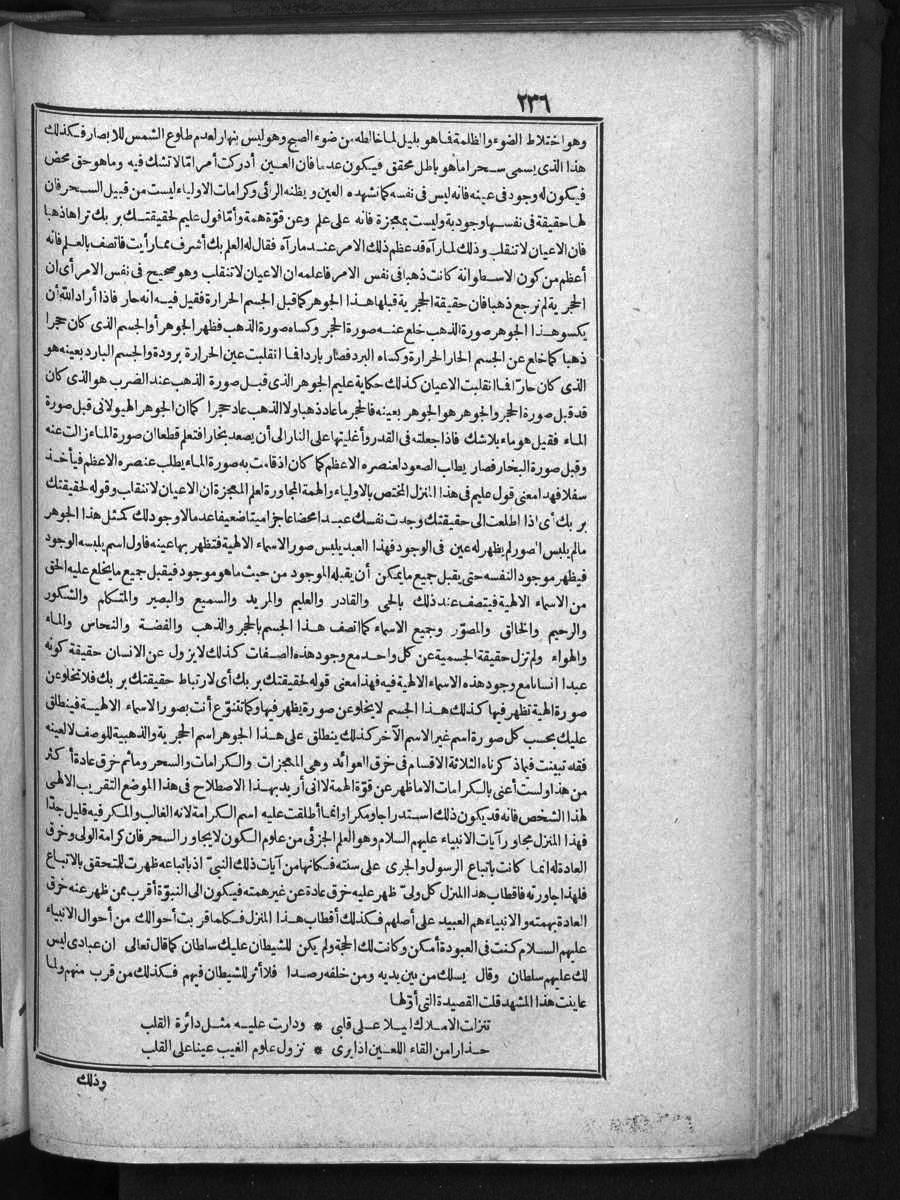 ٢٣٦
وهو اختلاط الضوء والظلمة فما هو بليل لما خالطه من ضوء الصبح وهو ليس بنهار لعدم طلوع الشمس للابصار فكذلك
هذا الذى يسمى سحرا ما هو باطل محقق فيكون عدما فان العين أدركت أمرا مّا لا تشك فيه وما هو حق محض
فيكون له وجود فى عينه فانه ليس فى نفسه كما تشهده العين ويظنه الرائى وكرامات الاولياء ليست من قبيل السحر فان
لها حقيقة فى نفسها وجودية وليست بمعجزة فانه على علم وعن قوّة همة وأمّا قول عليم لحقيقتك بربك تراها ذهبا
فان الاعيان لا تنقلب وذلك لما رآه قد عظم ذلك الامر عند ما رآه فقال له العلم بك أشرف مما رأيت فاتصف بالعلم فانه
أعظم من كون الاسطوانة كانت ذهبا فى نفس الامر فاعلمه ان الاعيان لا تنقلب وهو صحيح فى نفس الامر أى ان
الحجرية لم ترجع ذهبا فان حقيقة الحجرية قبلها هذا الجوهر كما قبل الجسم الحرارة فقيل فيه انه حار فاذا أراد الله أن
يكسو هذا الجوهر صورة الذهب خلع عنه صورة الحجر وكساه صورة الذهب فظهر الجوهر أو الجسم الذى كان حجرا
ذهبا كما خلع عن الجسم الحار الحرارة وكساه البرد فصار باردا فما انقلبت عين الحرارة برودة والجسم البارد بعينه هو
الذى كان حارّا فما انقلبت الاعيان كذلك حكاية عليم الجوهر الذى قبل صورة الذهب عند الضرب هو الذى كان
قد قبل صورة الحجر والجوهر هو الجوهر بعينه فالحجر ما عاد ذهبا ولا الذهب عاد حجرا كما ان الجوهر الهيولانى قبل صورة
الماء فقيل هو ماء بلا شك فاذا جعلته فى القدر وأغليتها على النار الى أن يصعد بخارا فتعلم قطعا ان صورة الماء زالت عنه
وقبل صورة البخار فصار يطلب الصعود لعنصره الاعظم كما كان اذ قامت به صورة الماء يطلب عنصره الاعظم فيأخذ
سفلا فهذا معنى قول عليم فى هذا المنزل المختص بالاولياء والهمة المجاورة لعلم المعجزة ان الاعيان لا تنقلب وقوله لحقيقتك
بربك أى اذا اطلعت الى حقيقتك وجدت نفسك عبدا محضا عاجزا ميتا ضعيفا عدما لا وجود لك كمثل هذا الجوهر
مالم يلبس الصور لم يظهر له عين فى الوجود فهذا العبد يلبس صور الاسماء الالهية فتظهر بها عينه فاول اسم يلبسه الوجود
فيظهر موجودا لنفسه حتى يقبل جميع ما يمكن أن يقبله الموجود من حيث ما هو موجود فيقبل جميع ما يخلع عليه الحق
من الاسماء الالهية فيتصف عند ذلك بالحى والقادر والعليم والمريد والسميع والبصير والمتكلم والشكور
والرحيم والخالق والمصوّر وجميع الاسماء كما اتصف هذا الجسم بالحجر والذهب والفضة والنحاس والماء
والهواء ولم تزل حقيقة الجسمية عن كل واحد مع وجود هذه الصفات كذلك لا يزول عن الانسان حقيقة كونه
عبدا انسانا مع وجود هذه الاسماء الالهية فيه فهذا معنى قوله لحقيقتك بربك أى لارتباط حقيقتك بربك فلا تخلو عن
صورة الهية تظهر فيها كذلك هذا الجسم لا يخلو عن صورة يظهر فيها وكما تتنوّع أنت بصور الاسماء الالهية فينطلق
عليك بحسب كل صورة اسم غير الاسم الآخر كذلك ينطلق على هذا الجوهر اسم الحجرية والذهبية للوصف لا لعينه
فقد تبينت فيما ذكرناه الثلاثة الاقسام فى خرق العوائد وهى المعجزات والكرامات والسحر وما ثم خرق عادة أكثر
من هذا ولست أعنى بالكرامات الا ما ظهر عن قوّة الهمة لا انى أريد بهذا الاصطلاح فى هذا الموضع التقريب الالهى
لهذا الشخص فانه قد يكون ذلك استدراجا ومكرا وانما أطلقت عليه اسم الكرامة لانه الغالب والمكر فيه قليل جدّا
فهذا المنزل مجاور آيات الانبياء عليهم السلام وهو العلم الجزئى من علوم الكون لا يجاور السحر فان كرامة الولى وخرق
العادة له انما كانت باتباع الرسول والجرى على سنته فكانها من آيات ذلك النبىّ اذ باتباعه ظهرت للتحقق بالاتباع
فلهذا جاورته فاقطاب هذا المنزل كل ولىّ ظهر عليه خرق عادة عن غير همته فيكون الى النبوّة أقرب ممن ظهر عنه خرق
العادة بهمته والانبياء هم العبيد على أصلهم فكذلك أقطاب هذا المنزل فكلما قربت أحوالك من أحوال الانبياء
عليهم السلام كنت فى العبودة أمكن وكانت لك الحجة ولم يكن للشيطان عليك سلطان كما قال تعالى ان عبادى ليس
لك عليهم سلطان وقال يسلك من بين يديه ومن خلفه رصدا فلا أثر للشيطان فيهم فكذلك من قرب منهم ولما
عاينت هذا المشهد قلت القصيدة التى أوّلها
تنزلت الاملاك ليلا على قلبى * ودارت عليه مثل دائرة القلب
حذارا من القاء اللعين اذا يرى * نزول علوم الغيب عينا على القلب
وذلك